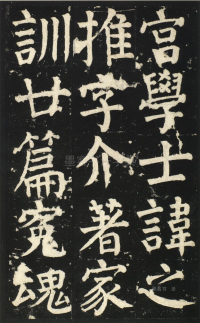 宫學士諱之
推字介著家
訓廿篇寃魂